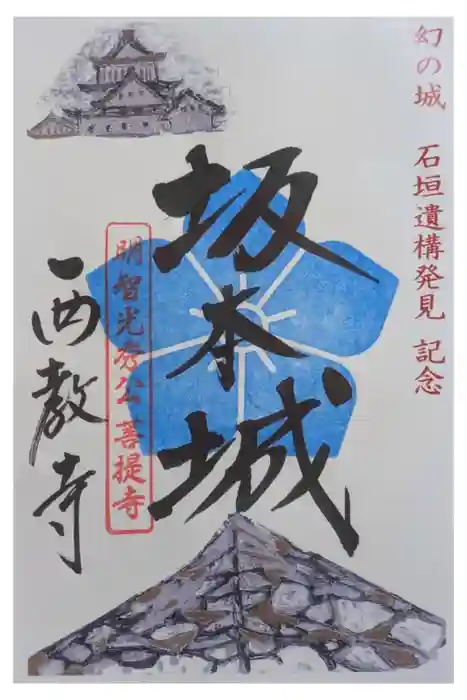 幻の城 石垣遺構発見 記念
坂本城
明智光秀公 菩提寺
西教寺